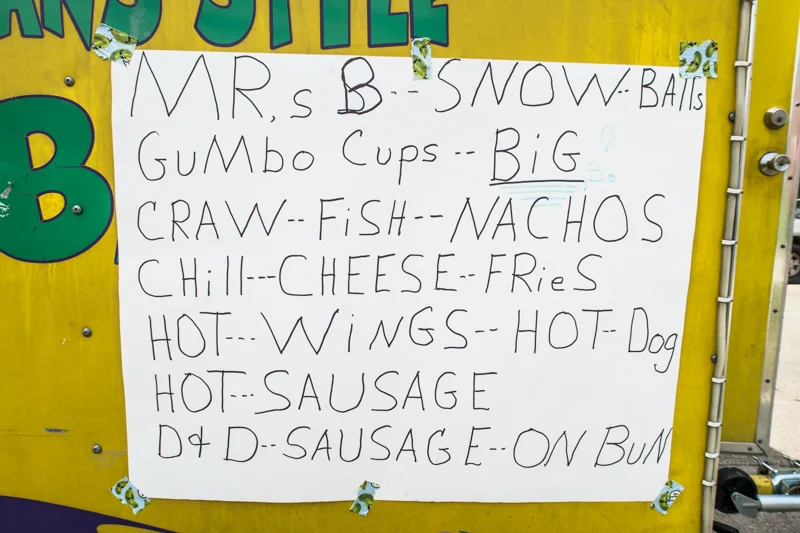 ANS STYLE
B
MR,s B-- SNOW-- BAlls
GuMbo Cups -- BiG!
CRAW-- FiSH-- NACHOS
CHill---CHEESE-- FRieS
HOT--- WiNGS-- HOT-- Dog
HOT--- SAUSAGE
D&D-- SAUSAGE-- ON BuN